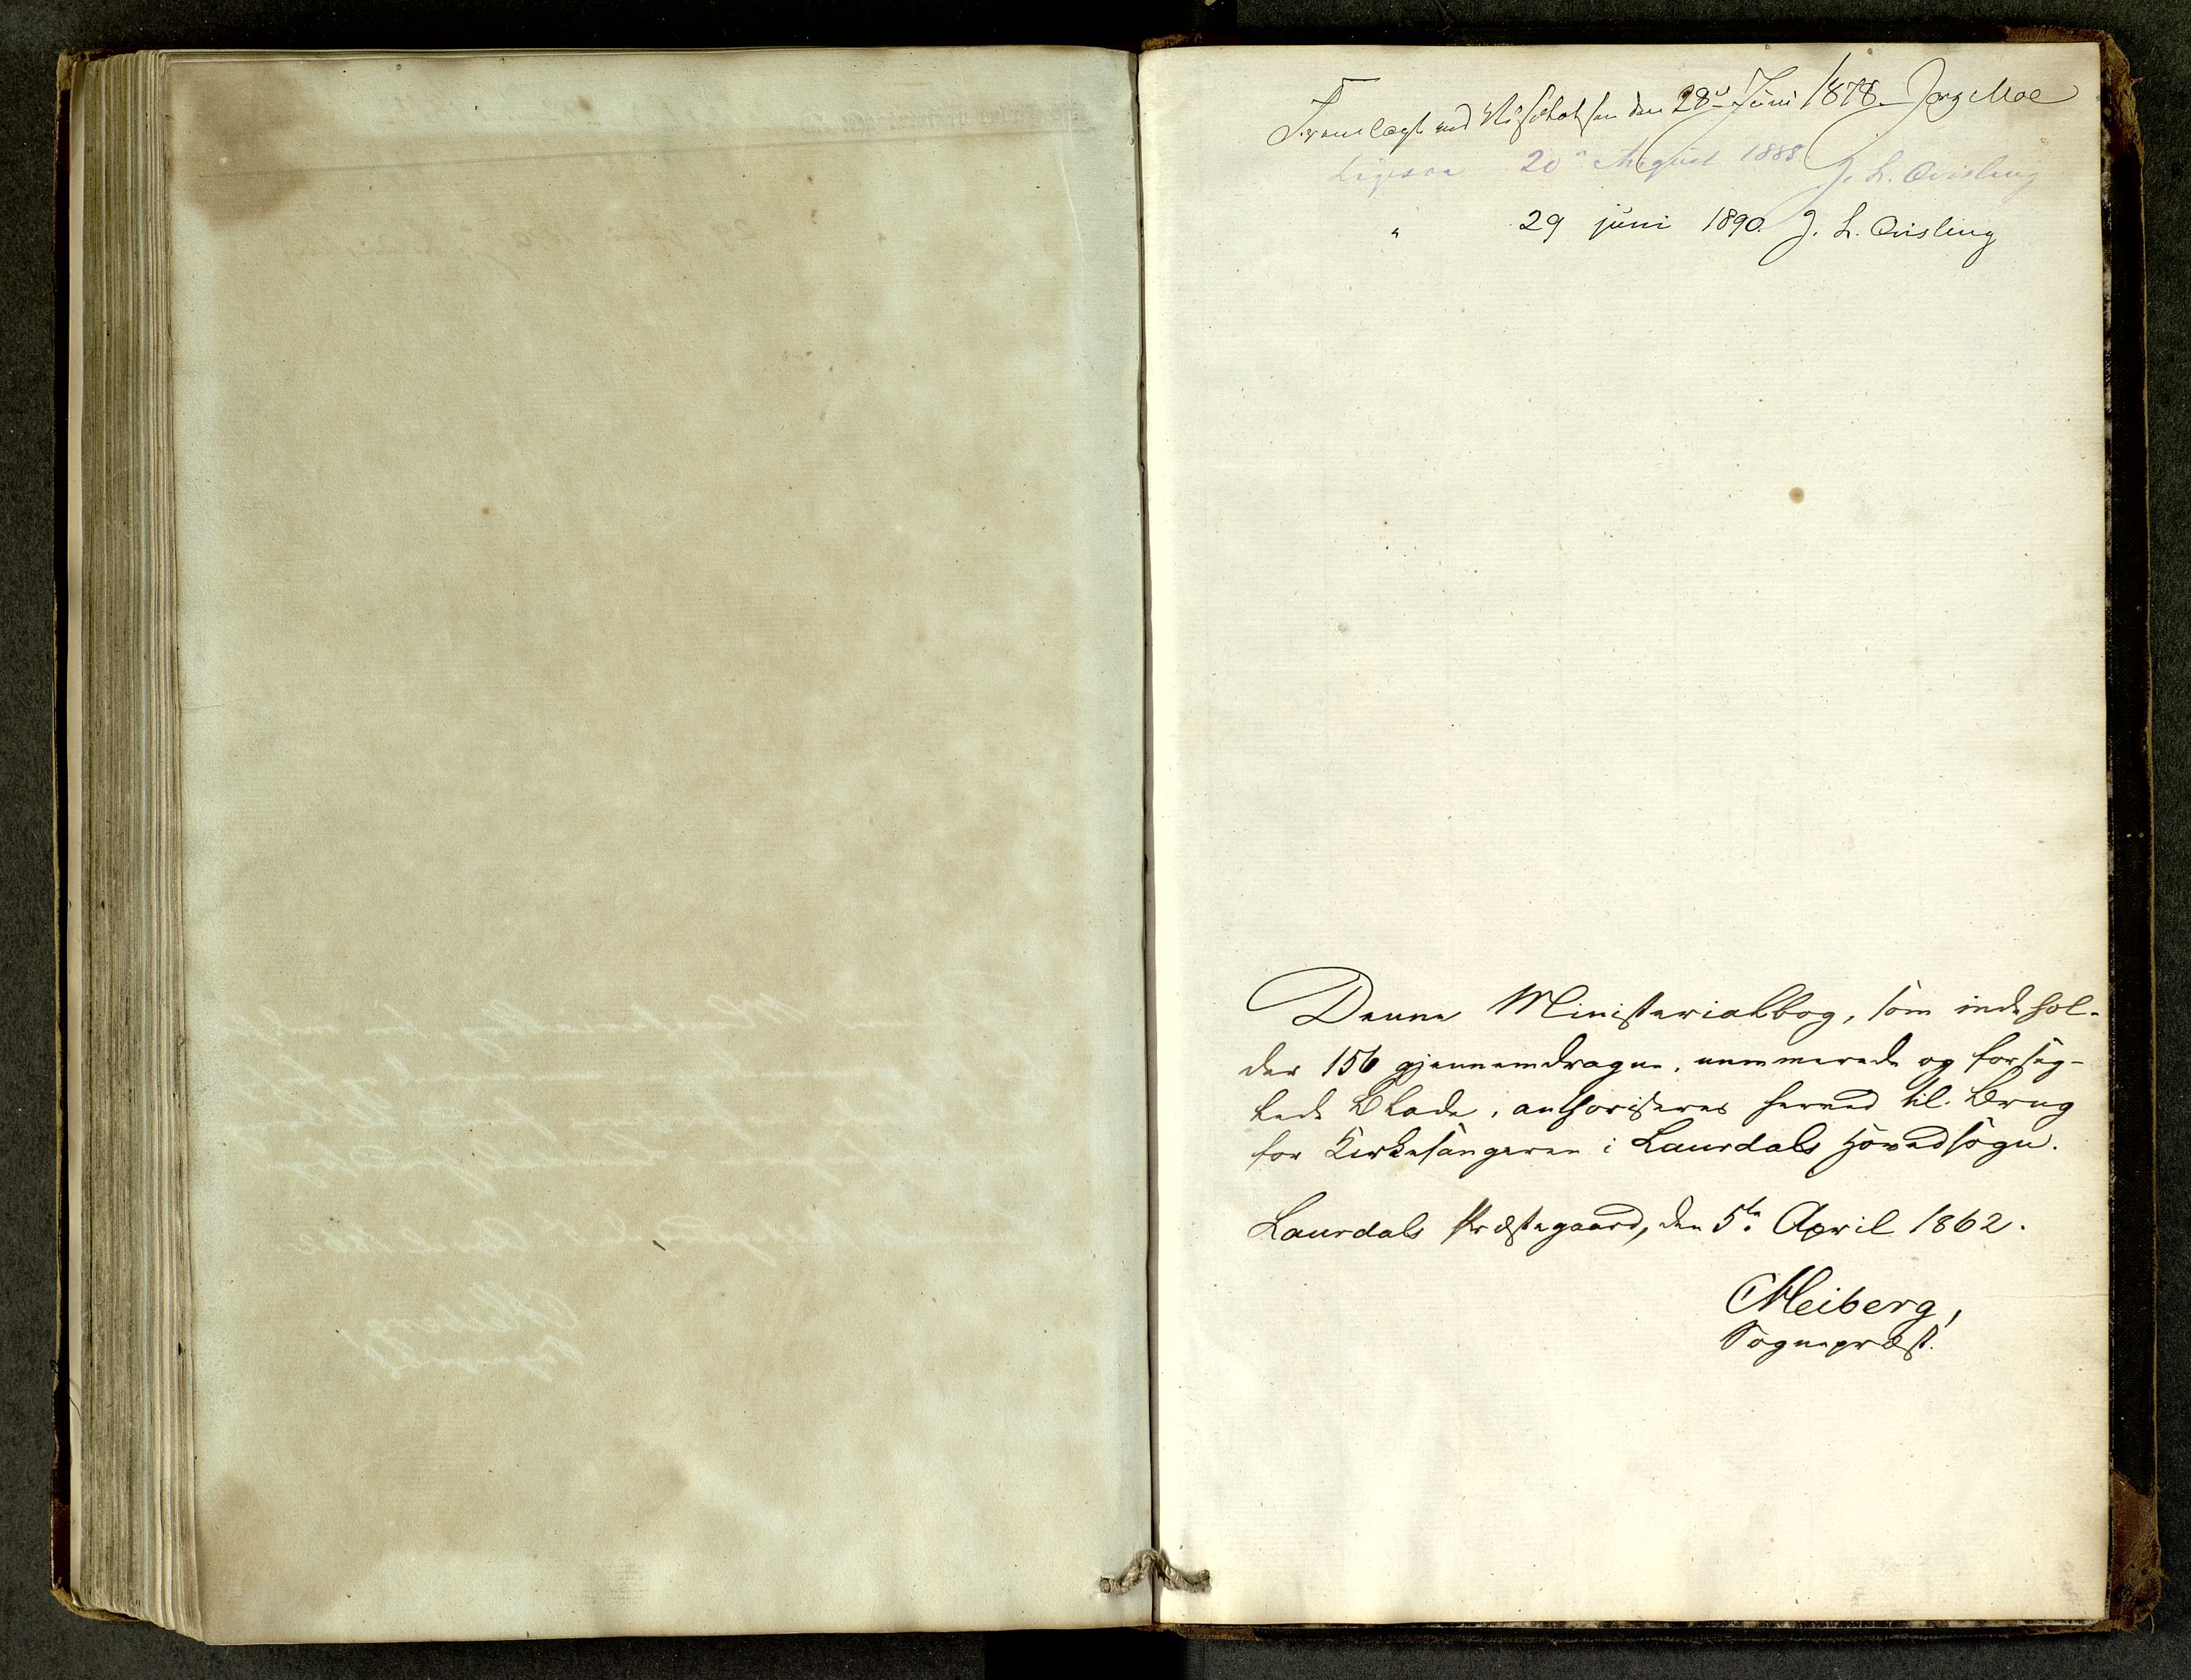 Fremlagt ved Visitatsen den 28de Juni 1878. Jørg Moe
Ligesaa 20de August 1888. J. L. Qvisling
" 29 juni 1890. J. L. Qvisling
Denne Ministerialbog, som indehol-
der 156 gjennemdragne, nummerede og forseg-
lede Blade, authoriseres herved til Brug
for Kirkesangeren i Laurdals Hovedsogn.
Laurdals Præstegaard, den 5te April 1862.
CMeiberg,
Sognepræst.